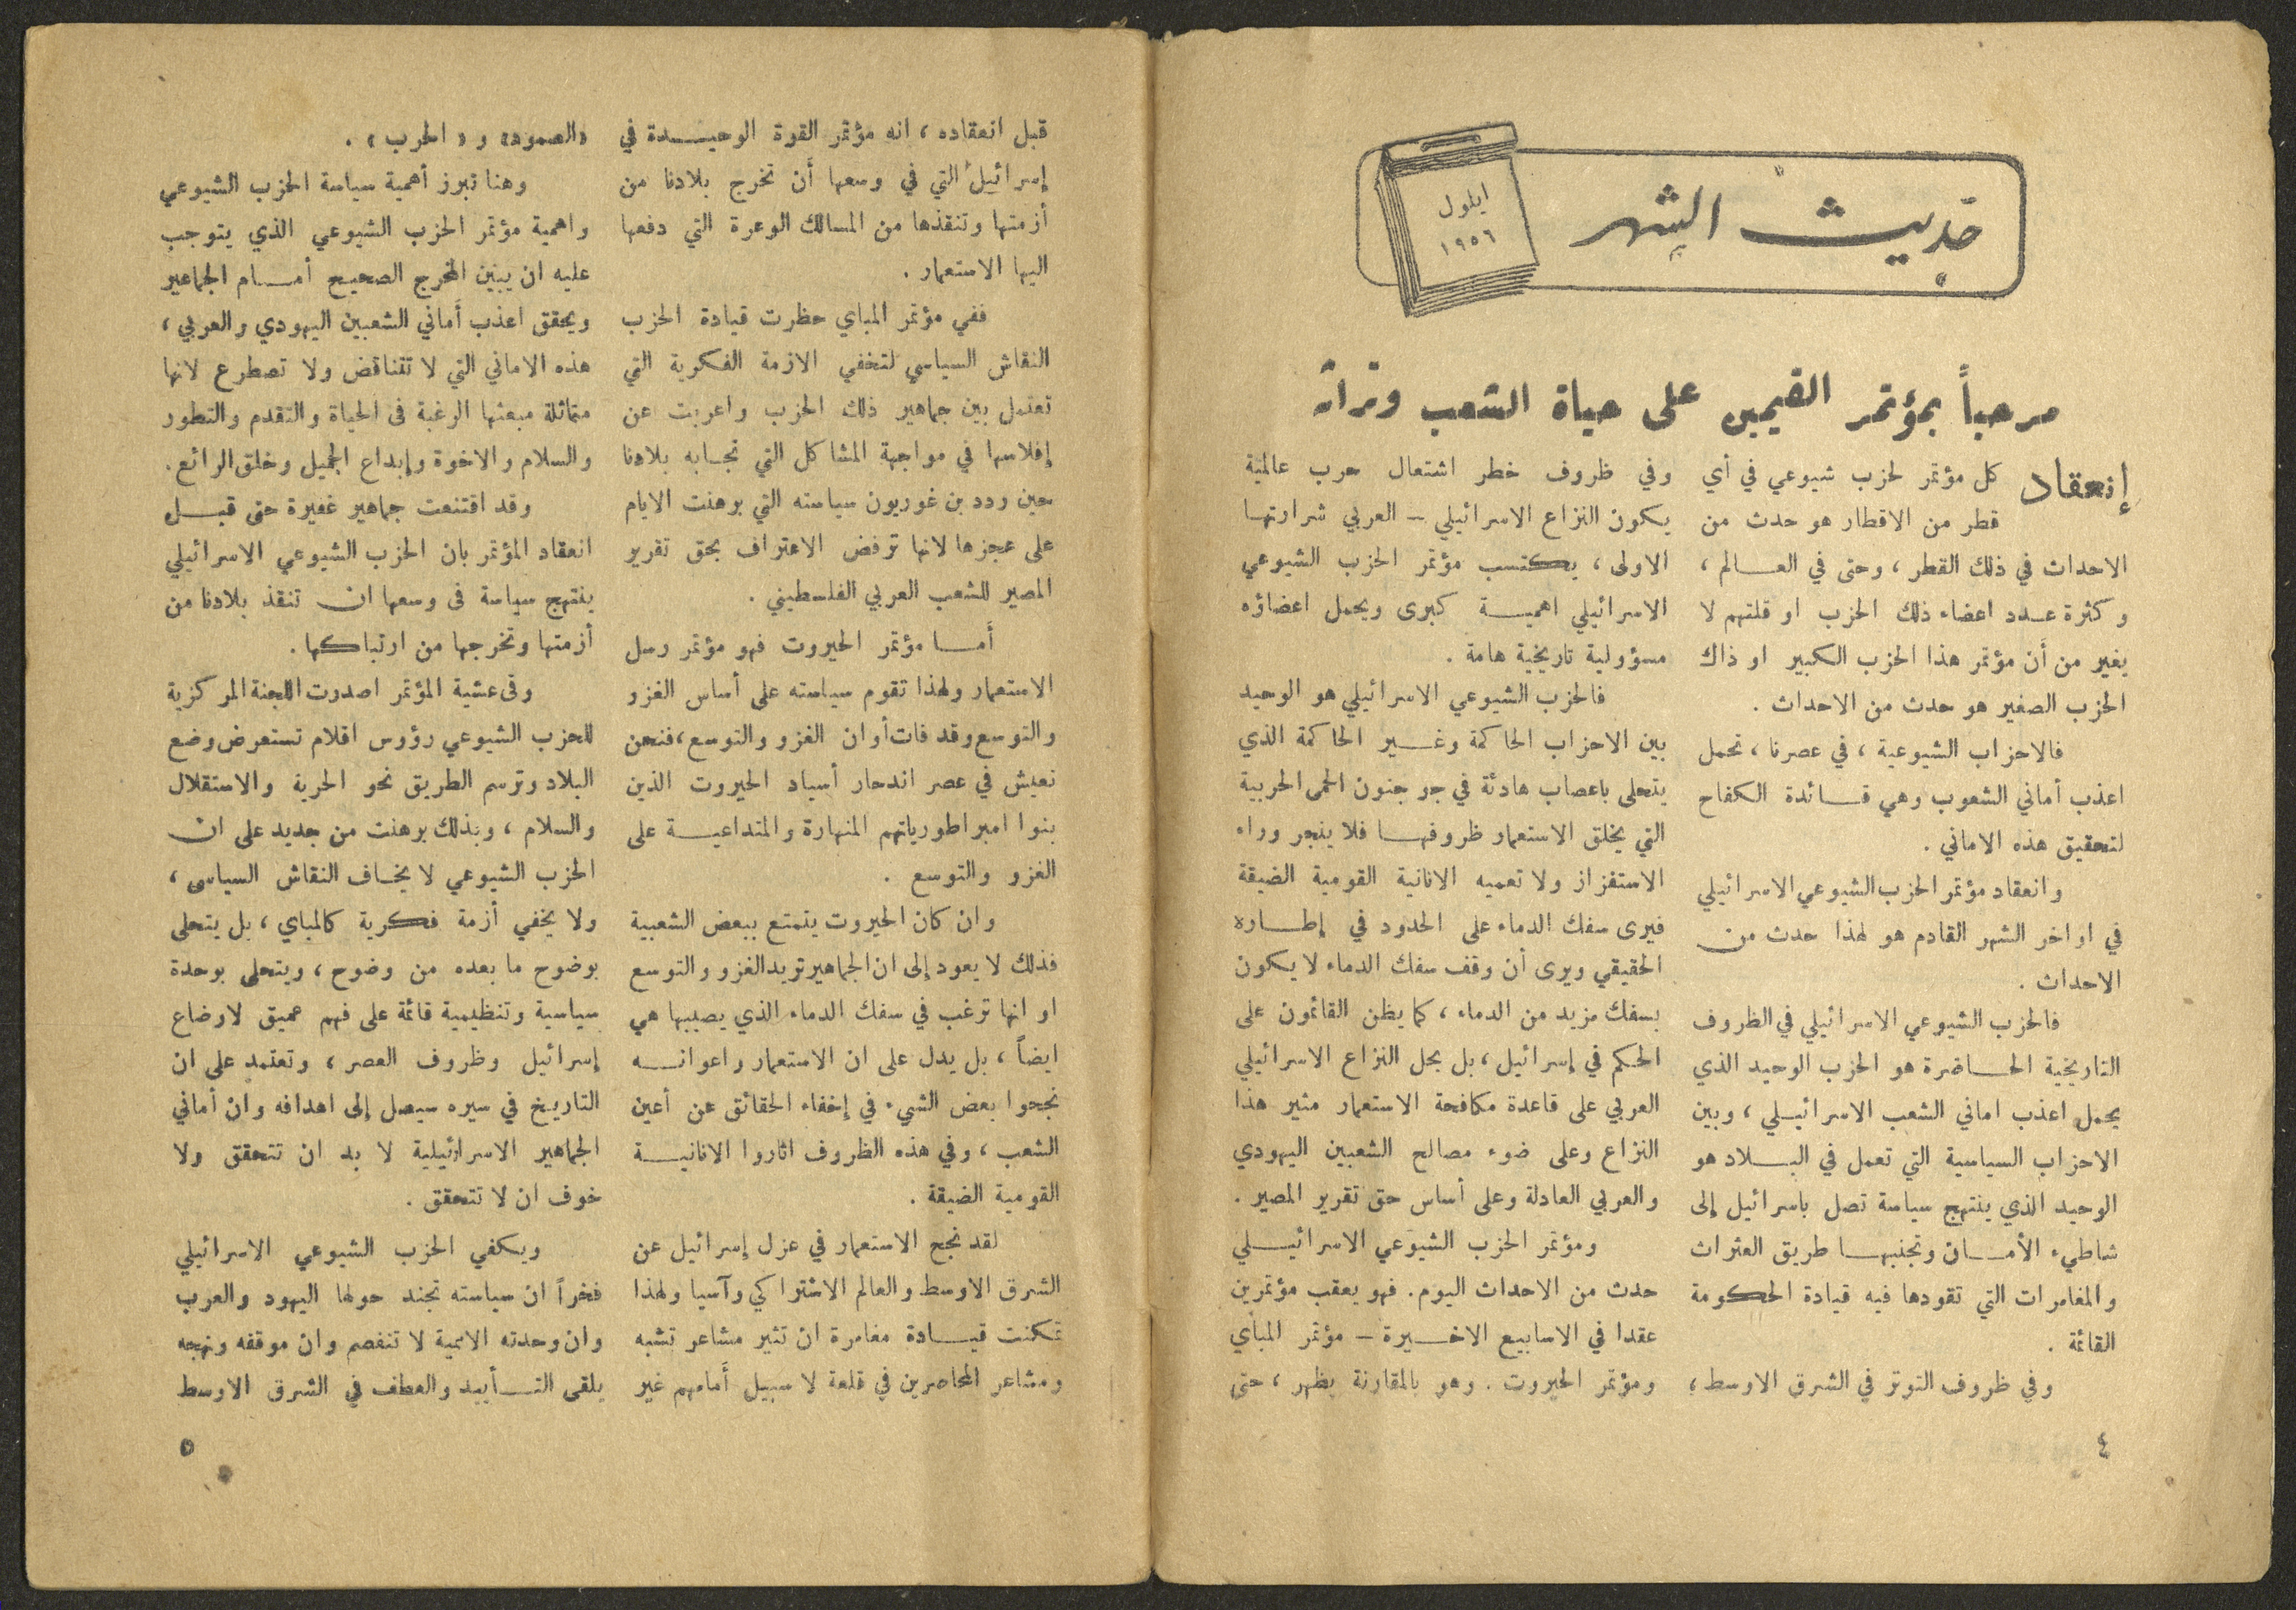 حديث الشهر
ايلول
١٩٥٦
مرحباً بمؤتمر القيمين على حياة الشعب وتراثه
إنعقاد كل مؤتمر لحزب شيوعي في أي
قطر من الاقطار هو حدث من
الاحداث في ذلك القطر ، وحتى في العالم ،
وكثرة عدد اعضاء ذلك الحزب او قلتهم لا
يغير من أن مؤتمر هذا الحزب الكبير او ذاك
الحزب الصغير هو حدث من الاحداث .
فالاحزاب الشيوعية ، في عصرنا ، تحمل
اعذب أماني الشعوب وهي قائدة الكفاح
لتحقيق هذه الاماني .
وانعقاد مؤتمر الحزب الشيوعي الاسرائيلي
في اواخر الشهر القادم هو لهذا حدث من
الاحداث .
فالحزب الشيوعي الاسرائيلي في الظروف
التاريخية الحاضرة هو الحزب الوحيد الذي
يحمل اعذب اماني الشعب الاسرائيلي ، وبين
الاحزاب السياسية التي تعمل في البلاد هو
الوحيد الذي ينتهج سياسة تصل باسرائيل إلى
شاطيء الأمان وتجنبها طريق العثرات
والمغامرات التي تقودها فيه قيادة الحكومة
القائمة .
وفي ظروف التوتر في الشرق الاوسط ،
وفي ظروف خطر اشتعال حرب عالمية
يكون النزاع الاسرائيلي – العربي شرارتها
الاولى ، يكتسب مؤتمر الحزب الشيوعي
الاسرائيلي اهمية كبرى ويحمل اعضاؤه
مسؤولية تاريخية هامة .
فالحزب الشيوعي الاسرائيلي هو الوحيد
بين الاحزاب الحاكمة وغير الحاكمة الذي
يتحلى باعصاب هادئة في جو جنون الحمى الحربية
التي يخلق الاستعمار ظروفها فلا ينجر وراء
الاستفزاز ولا تعميه الانانية القومية الضيقة
فيرى سفك الدماء على الحدود في إطاره
الحقيقي ويرى أن وقف سفك الدماء لا يكون
بسفك مزيد من الدماء ، كما يظن القائمون على
الحكم في إسرائيل ، بل بحل النزاع الاسرائيلي
العربي على قاعدة مكافحة الاستعمار مثير هذا
النزاع وعلى ضوء مصالح الشعبين اليهودي
والعربي العادلة وعلى أساس حق تقرير المصير .
ومؤتمر الحزب الشيوعي الاسرائيلي
حدث من الاحداث اليوم . فهو يعقب مؤتمرين
عقدا في الاسابيع الاخيرة – مؤتمر المباي
ومؤتمر الحيروت . وهو بالمقارنة يظهر ، حتى
٤
قبل انعقاده ، انه مؤتمر القوة الوحيدة في
إسرائيل التي في وسعها أن تخرج بلادنا من
أزمتها وتنقذها من المسالك الوعرة التي دفعها
اليها الاستعمار .
ففي مؤتمر المباي حظرت قيادة الحزب
النقاش السياسي لتخفي الازمة الفكرية التي
تعتمل بين جماهير ذلك الحزب واعربت عن
إفلاسها في مواجهة المشاكل التي تجابه بلادنا
حين ردد بن غوريون سياسته التي برهنت الايام
على عجزها لانها ترفض الاعتراف بحق تقرير
المصير للشعب العربي الفلسطيني .
أما مؤتمر الحيروت فهو مؤتمر رسل
الاستعمار ولهذا تقوم سياسته على أساس الغزو
والتوسع وقد فات أوان الغزو والتوسع ، فنحن
نعيش في عصر اندحار أسياد الحيروت الذين
بنوا امبراطورياتهم المنهارة والمتداعية على
الغزو والتوسع .
وان كان الحيروت يتمتع ببعض الشعبية
فذلك لا يعود إلى ان الجماهير تريد الغزو والتوسع
او انها ترغب في سفك الدماء الذي يصيبها هي
ايضاً ، بل يدل على ان الاستعمار واعوانه
نجحوا بعض الشيء في إخفاء الحقائق عن أعين
الشعب ، وفي هذه الظروف اثاروا الانانية
القومية الضيقة .
لقد نجح الاستعمار في عزل إسرائيل عن
الشرق الاوسط والعالم الاشتراكي وآسيا ولهذا
تمكنت قيادة مغامرة ان تثير مشاعر تشبه
ومشاعر المحاصرين في قلعة لا سبيل أمامهم غير
«الصمود» و « الحرب » .
وهنا تبرز أهمية سياسة الحزب الشيوعي
واهمية مؤتمر الحزب الشيوعي الذي يتوجب
عليه ان يبين المخرج الصحيح أمام الجماهير
ويحقق اعذب أماني الشعبين اليهودي والعربي ،
هذه الاماني التي لا تتناقض ولا تصطرع لانها
متماثلة مبعثها الرغبة في الحياة والتقدم والتطور
والسلام والاخوة وإبداع الجميل وخلق الرائع .
وقد اقتنعت جماهير غفيرة حتى قبل
انعقاد المؤتمر بان الحزب الشيوعي الاسرائيلي
ينتهج سياسة في وسعها ان تنقذ بلادنا من
أزمتها وتخرجها من ارتباكها .
وفي عشية المؤتمر اصدرت اللجنة المركزية
للحزب الشيوعي رؤوس اقلام تستعرض وضع
البلاد وترسم الطريق نحو الحرية والاستقلال
والسلام ، وبذلك برهنت من جديد على ان
الحزب الشيوعي لا يخاف النقاش السياسي ،
ولا يخفي أزمة فكرية كالمباي ، بل يتحلى
بوضوح ما بعده من وضوح ، ويتحلى بوحدة
سياسية وتنظيمية قائمة على فهم عميق لاوضاع
إسرائيل وظروف العصر ، وتعتمد على ان
التاريخ في سيره سيصل إلى اهدافه وان أماني
الجماهير الاسرائيلية لا بد ان تتحقق ولا
خوف ان لا تتحقق .
ويكفي الحزب الشيوعي الاسرائيلي
فخراً ان سياسته تجند حولها اليهود والعرب
وان وحدته الاممية لا تنفصم وان موقفه ونهجه
يلقى التأييد والعطف في الشرق الاوسط
٥